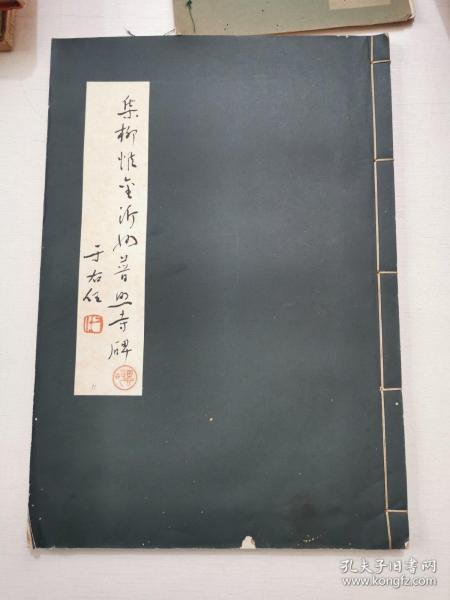 集柳金沂州普照寺碑
于右任
孔夫子旧书网
www.kongfz.com